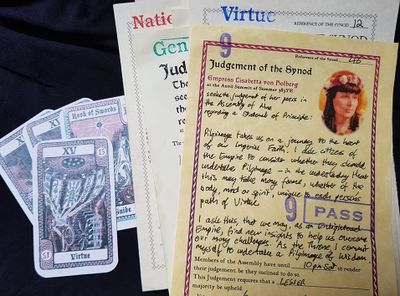 Natio
Virtue
REFERENCE OF THE SYNOD 12
Gen
9
Reference of the Synod 46
Judgement of the Synod
Empress Lisabetta von Holberg
at the Anvil Summit of Summer 383YE
seeks the judgement of her peers in
the Assembly of Nine
regarding a Statement of Principle:
Pilgrimage takes us on a journey to the heart
of our Imperial Faith. I ask citizens of
the Empire to consider whether they should
undertake Pilgrimage - in the understanding that
this may take many forms, whether of the
body, mind or spirit, unique to each persons
path of Virtue.
9 PASS
I ask this, that we may, as an Enlightened
Empire, find new insights to help us overcome
our many challenges. As the Throne I commit
myself to undertake a Pilgrimage of Wisdom
Members of the Assembly have until 10pm Sat to render
their judgement be they inclined to do so
This Judgement requires that a LESSER
majority be upheld
XX
XV
Rook of Swords
Guide
XV
Virtue